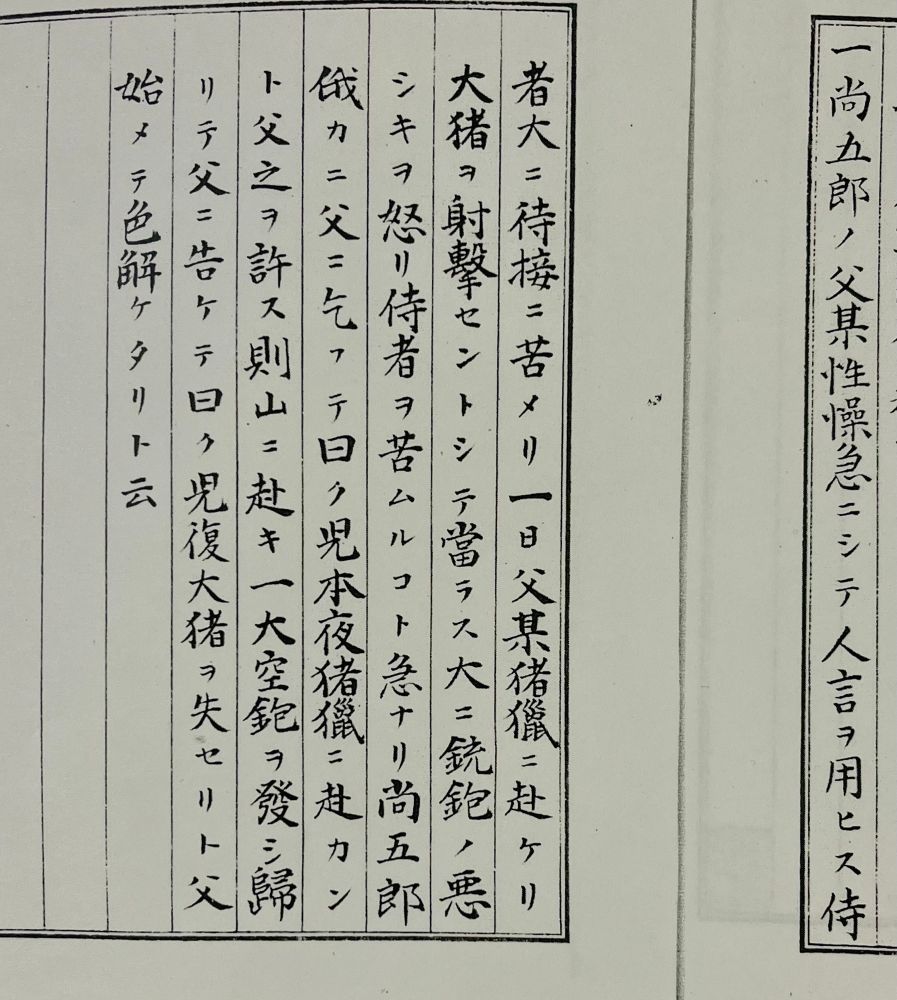 一尚五郎ノ父某性懆急ニシテ人言ヲ用ヒス侍
者大ニ待接ニ苦メリ一日父某猪獵ニ赴ケリ
大猪ヲ射撃セントシテ當ラス大ニ銃鉋ノ悪
シキヲ怒リ侍者ヲ苦ムルコト急ナリ尚五郎
俄カニ父ニ乞フテ曰ク児本夜猪獵ニ赴カン
ト父之ヲ許ス則山ニ赴キ一大空鉋ヲ發シ歸
リテ父ニ告ケテ曰ク児復大猪ヲ失セリト父
始メテ色解ケタリト云